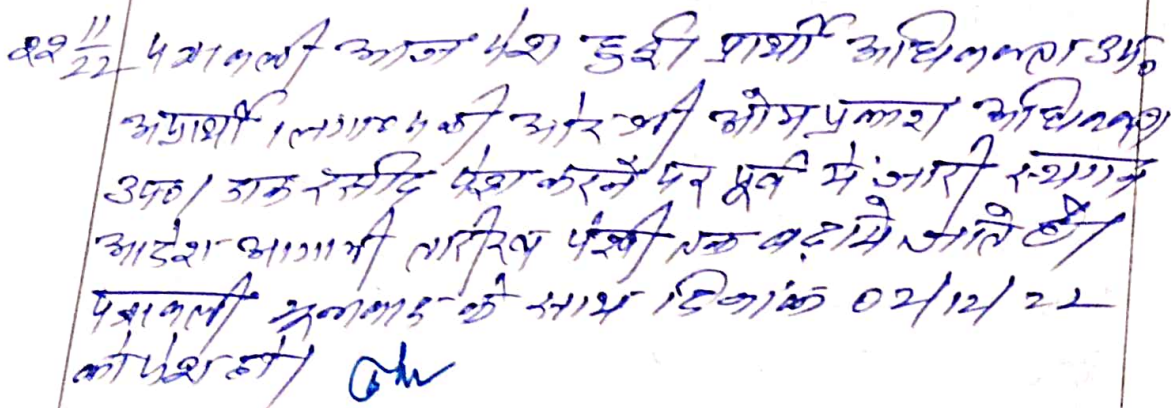 22 11/22 पत्रावली आज पेश हुई। प्रार्थी अधिवक्ता उप०
अप्रार्थी की ओर श्री ओम प्रकाश अधिवक्ता
उप०। डाक रसीद पेश करने पर पूर्व मे जारी स्थगन
आदेश आगामी तारीख पेशी तक बढ़ाये जाते है।
पत्रावली मूलवाद के साथ दिनांक 02/12/22
को पेश हो।